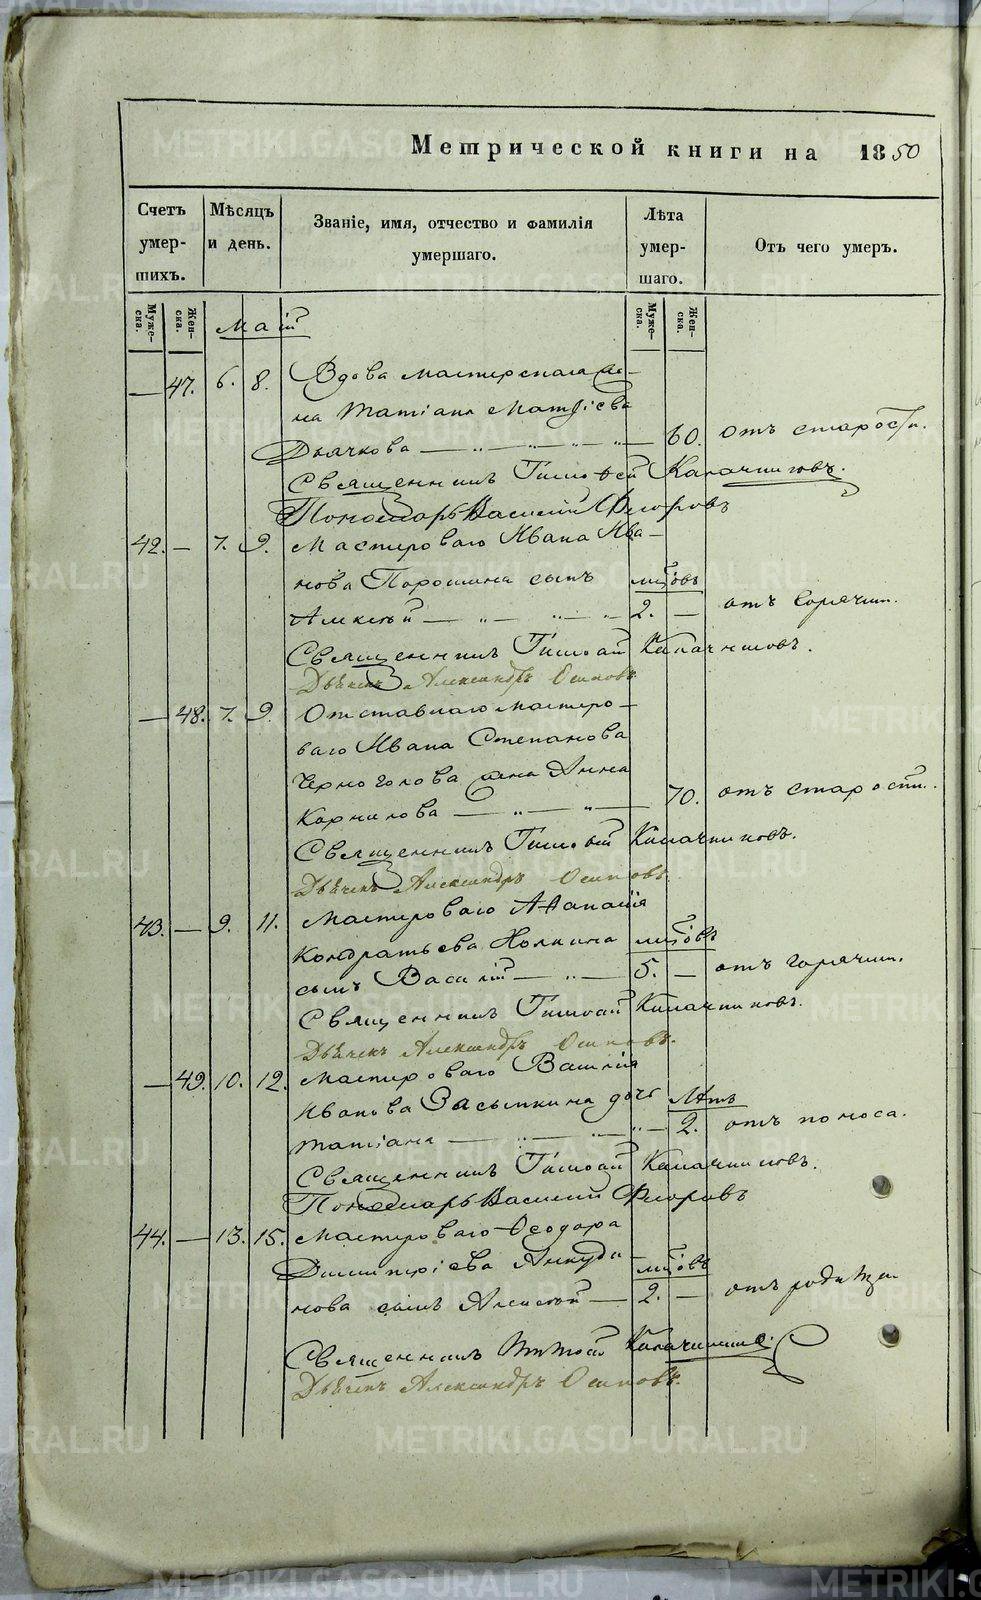 Метрической книги на 1850
Счетъ умершихъ.
Мѣсяцъ и день.
Званіе, имя, отчество и фамилія умершаго.
Лѣта умершаго.
Отъ чего умеръ.
Мужеска.
Женска.
Май
Мужеска.
Женска.
Вдова мастерскаго же-
— 47. 6. 8. на Татіана Матѳіева
Дьячкова — „ — „ — 60. отъ старости.
Священникъ Тимоѳей Калачниковъ.
Пономарь Василій Флоровъ
42. — 7. 9. Мастероваго Ивана Ива-
нова Порошина сынъ мѣсяцовъ
Алексѣй — „ — „ — „ 2. — отъ горячки.
Священникъ Тимоѳей Калачниковъ.
Дьячекъ Александръ Осиповъ
— 48. 7. 9. Отставнаго мастеро-
ваго Ивана Степанова
Черноголова жена Анна
Карпилова — „ — „ — 70. отъ старости.
Священникъ Тимоѳей Калачниковъ.
Дьячекъ Александръ Осиповъ.
43. — 9. 11. Мастероваго Аѳанасія
Кондратьева сынъ Василій — „ — мѣсяцовъ
5. — отъ горячки.
Священникъ Тимоѳей Калачниковъ.
Дьячекъ Александръ Осиповъ.
— 49. 10. 12. Мастероваго Василія
Иванова Засыпкина дочь Лѣтъ
Татіана — „ — „ — 2. отъ поноса.
Священникъ Тимоѳей Калачниковъ.
Пономарь Василій Флоровъ
44. — 13. 15. Мастероваго Ѳеодора
Димитріева Анкуди- мѣсяцовъ
нова сынъ Алексѣй — 2. — отъ родимца
Священникъ Тимоѳей Калачниковъ.
Дьячекъ Александръ Осиповъ.
METRIKI.GASO-URAL.RU